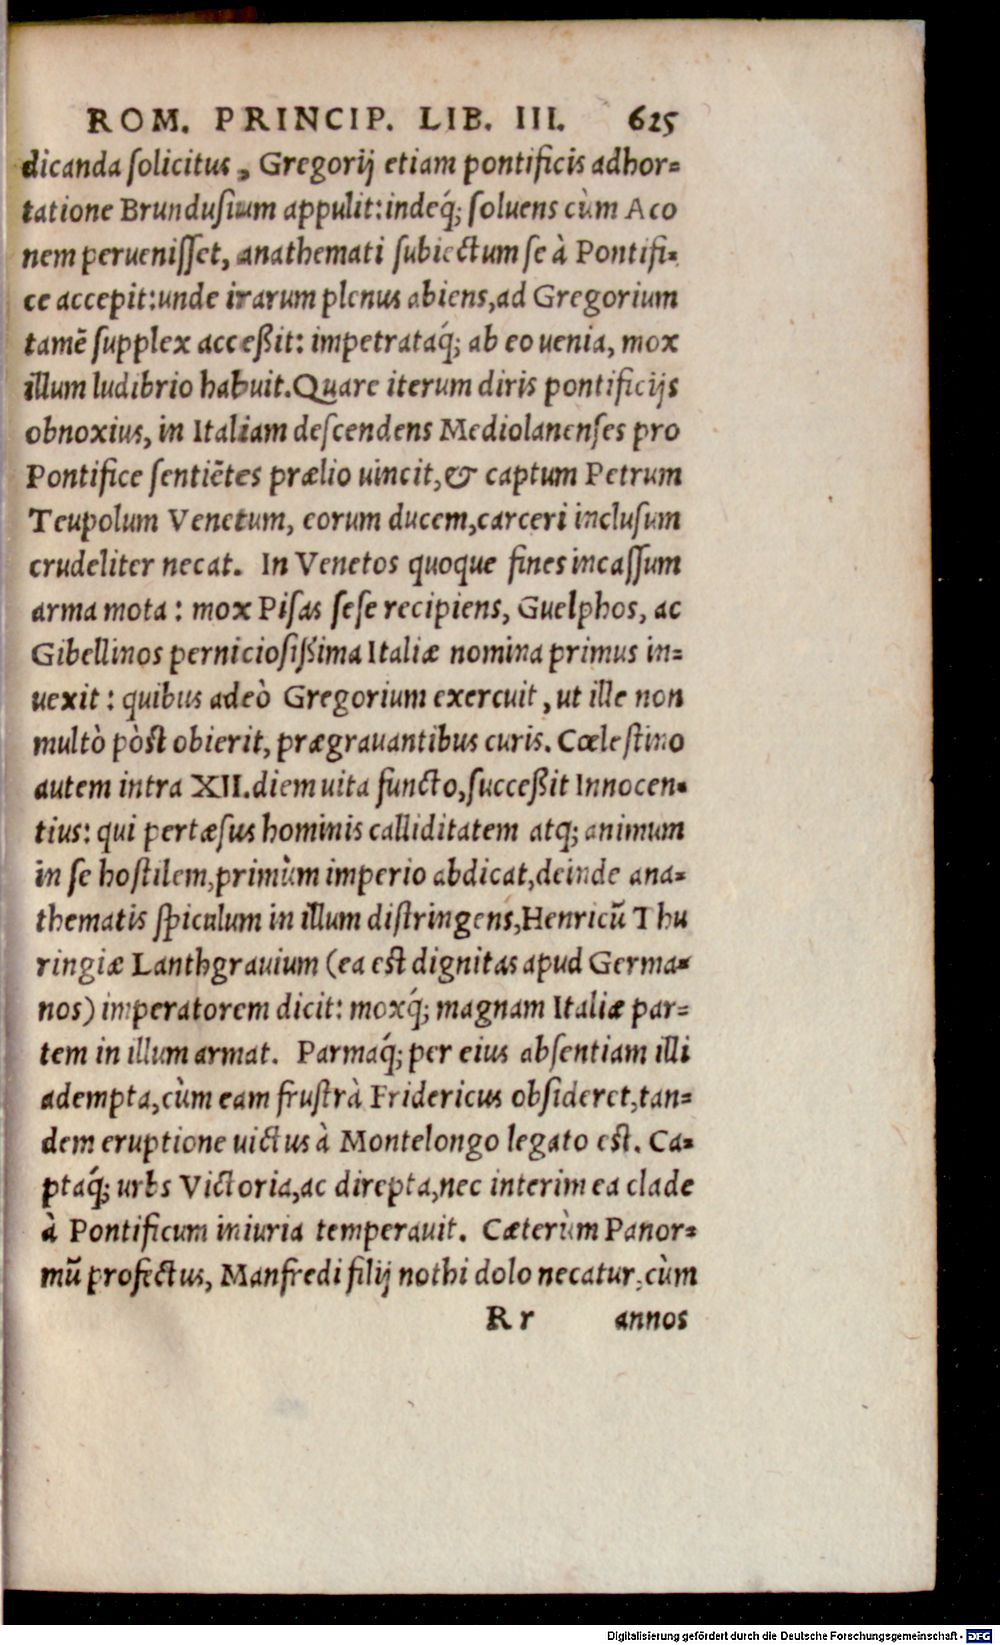 ROM. PRINCIP. LIB. III. 625
dicanda ſolicitus, Gregorij etiam pontificis adhor=
tatione Brunduſium appulit: indeq́; ſoluens cùm Aco
nem perueniſſet, anathemati ſubiectum ſe à Pontifi=
ce accepit: unde irarum plenus abiens, ad Gregorium
tamē ſupplex acceßit: impetrataq́; ab eo uenia, mox
illum ludibrio habuit. Quare iterum diris pontificijs
obnoxius, in Italiam deſcendens Mediolanenſes pro
Pontifice ſentiētes prælio uincit, & captum Petrum
Teupolum Venetum, eorum ducem, carceri incluſum
crudeliter necat. In Venetos quoque fines incaſſum
arma mota: mox Piſas ſeſe recipiens, Guelphos, ac
Gibellinos pernicioſißima Italiæ nomina primus in=
uexit: quibus adeò Gregorium exercuit, ut ille non
multò pòst obierit, prægrauantibus curis. Cœleſtino
autem intra XII. diem uita functo, ſucceßit Innocen=
tius: qui pertæſus hominis calliditatem atq; animum
in ſe hoſtilem, primùm imperio abdicat, deinde ana=
thematis ſpiculum in illum diſtringens, Henricū Thu
ringiæ Lanthgrauium (ea est dignitas apud Germa=
nos) imperatorem dicit: moxq́; magnam Italiæ par=
tem in illum armat. Parmaq́; per eius abſentiam illi
adempta, cùm eam fruſtrà Fridericus obſideret, tan=
dem eruptione uictus à Montelongo legato eſt. Ca=
ptaq́; urbs Victoria, ac direpta, nec interim ea clade
à Pontificum iniuria temperauit. Cæterùm Panor=
mū profectus, Manfredi filij nothi dolo necatur, cùm
R r annos
Digitalisierung gefördert durch die Deutsche Forschungsgemeinschaft - DFG